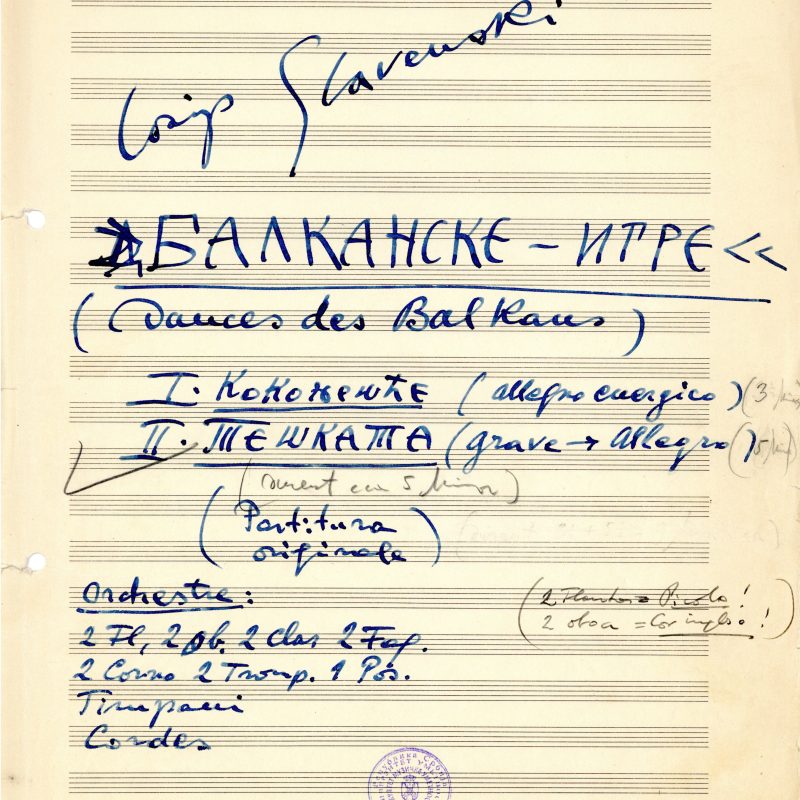 Josip Slavenski
БАЛКАНСКЕ – ИГРЕ <<
(Dances des Balkans)
I. Кокоњешће (allegro energico) (3 min)
II. ТЕШКАТА (grave → Allegro) (5 min)
(5 minut)
(Partitura
originale)
Orchestre:
(2 Flauto = Picolo!
2 oboa = Cor inglo!)
2 Fl, 2 ob. 2 Clar 2 Fag.
2 Corno 2 Tromp. 1 Pos.
Timpani
Cordes
Република Србија